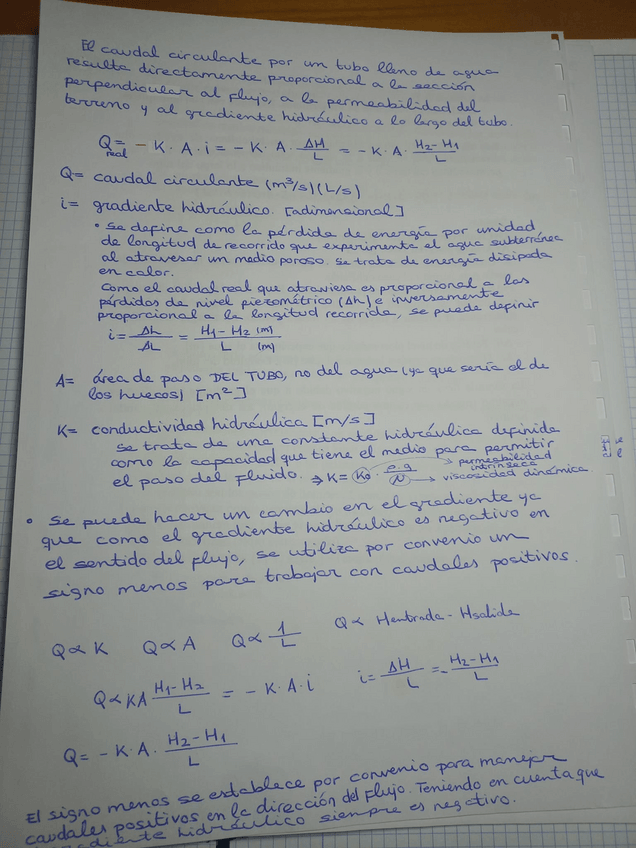 El caudal circulante por un tubo lleno de agua
resulta directamente proporcional a la sección
perpendicular al flujo, a la permeabilidad del
terreno y al gradiente hidráulico a lo largo del tubo.
Q = - K · A · i = - K · A · ΔH/L = - K · A · H2-H1/L
real
Q = caudal circulante (m³/s) (L/s)
i = gradiente hidráulico. [adimensional]
• Se define como la pérdida de energía por unidad
de longitud de recorrido que experimenta el agua subterránea
al atravesar un medio poroso. Se trata de energía disipada
en calor.
Como el caudal real que atraviesa es proporcional a las
pérdidas de nivel piezométrico (Δh) e inversamente
proporcional a la longitud recorrida, se puede definir
i = Δh/ΔL = H1-H2 (m)/L (m)
A = área de paso DEL TUBO, no del agua (ya que sería el de
los huecos) [m²]
K = conductividad hidráulica [m/s]
Se trata de una constante hidráulica definida
como la capacidad que tiene el medio para permitir
el paso del fluido. ⇒ K = K0 · ρ·g/μ → permeabilidad intrínseca
→ viscosidad dinámica
• Se puede hacer un cambio en el gradiente ya
que como el gradiente hidráulico es negativo en
el sentido del flujo, se utiliza por convenio un
signo menos para trabajar con caudales positivos.
Q ∝ K Q ∝ A Q ∝ 1/L Q ∝ Hentrada - Hsalida
Q ∝ KA H1-H2/L = - K · A · i i = ΔH/L = - H2-H1/L
Q = - K · A · H2-H1/L
El signo menos se establece por convenio para manejar
caudales positivos en la dirección del flujo. Teniendo en cuenta que
gradiente hidráulico siempre es negativo.